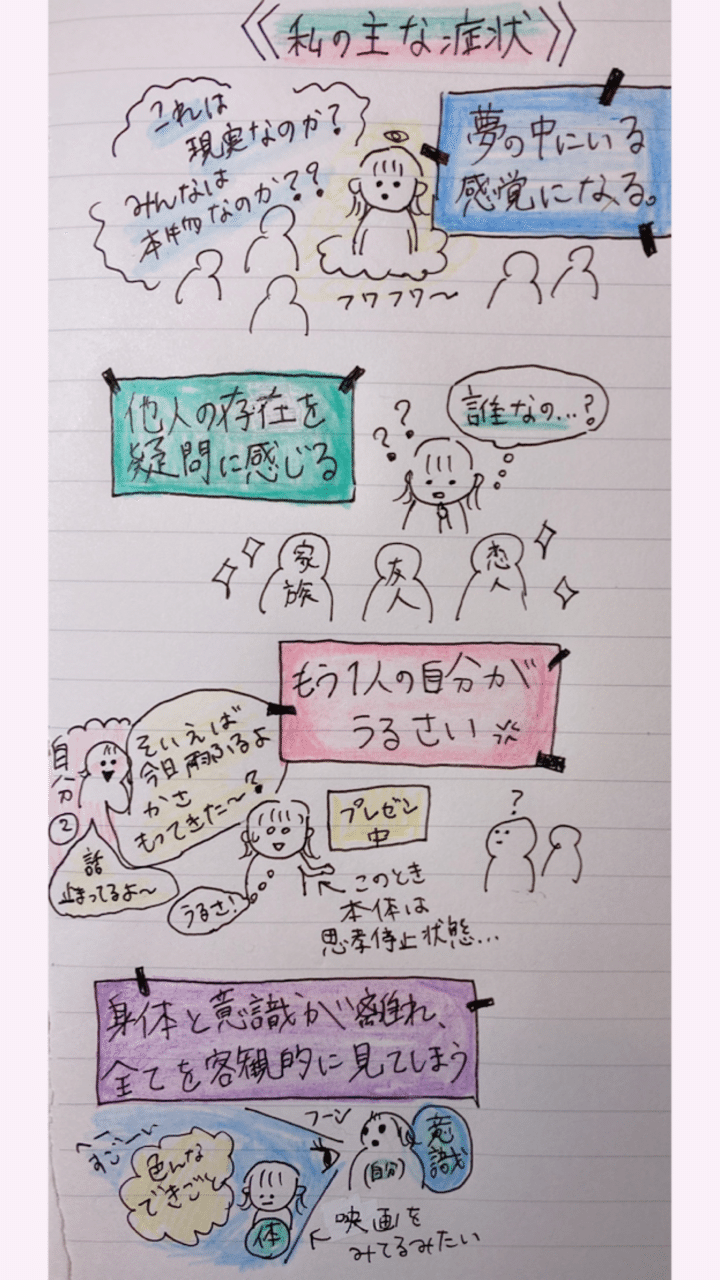 《私の主な症状》
これは
現実なのか?
みんなは
本物なのか??
夢の中にいる
感覚になる。
フワフワ〜
他人の存在を
疑問に感じる
誰なの…?
??
家族
友人
恋人
もう1人の自分が
うるさい
自分②
そいえば
今日雨ふるよ
かさ
もってきた〜?
話
止まってるよ〜
うるさ!
プレゼン
中
?
このとき
本体は
思考停止状態…
身体と意識が離れ、
全てを客観的に見てしまう
へー
すごーい
色んな
できごと
体
フーン
(自分)
意識
映画を
みてるみたい